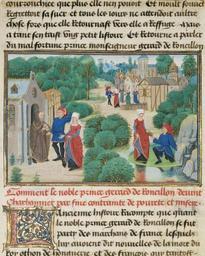 couschience que plus elle nen pouoit Et moult souuent
regretoit sa suer et tous les iours ne attendoit aultre
chose fors que elle retournast vers elle a
a tant sen taist ung petit listoire Et retourne a parler
du mal fortune prince monseigneur gerard de Roncillon
Comment le noble prince gerard de Roncillon deuint
Charbonnier par fine contrainte de pourete et misere
Ancienne histoire Racompte que quant
le noble prince gerard de Roncillon se fut
party des marchans de france lesquelz
luy auoient dit nouuelles de la mort du
Roy othon de honguerie et des francois que